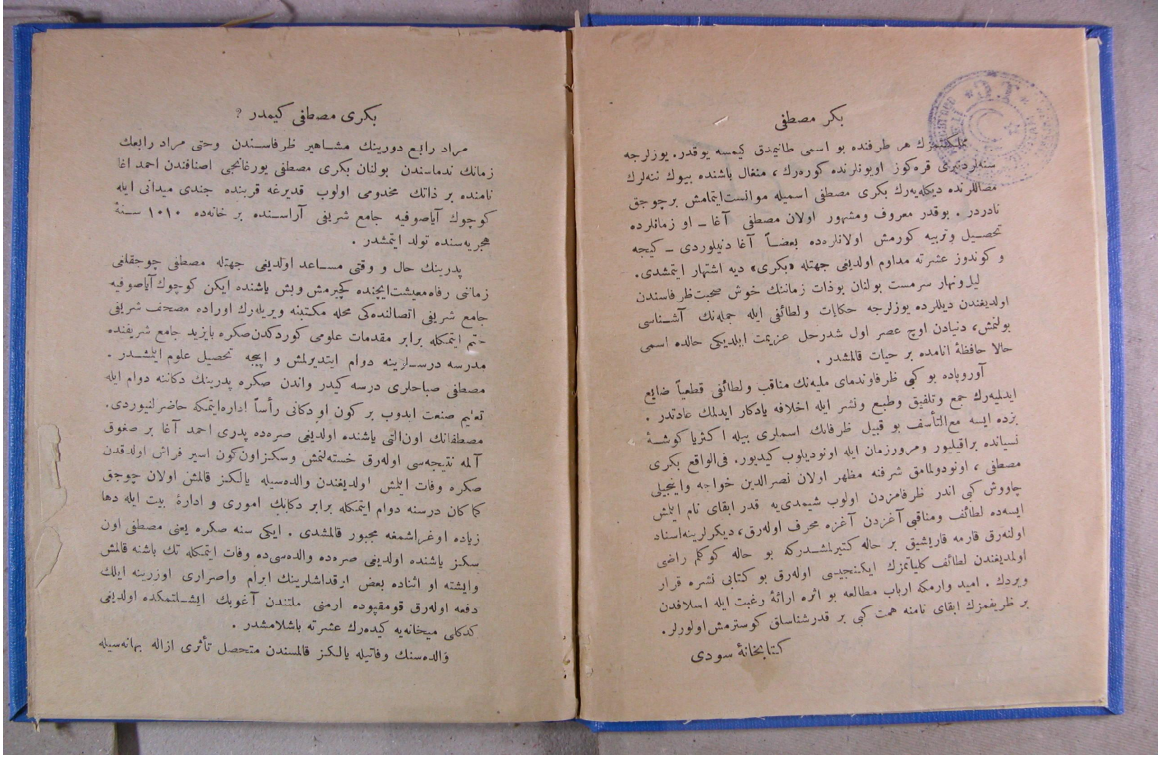 بكر مصطفى
مملكتمزك هر طرفنده بو اسمى طانيمدق كيمسه يوقدر. يوزلرجه
سنه‌لردنبرى قره‌كوز اويونلرنده كوره‌رك، منغال باشنده بيوك ننه‌لرك
مصاللرنده ديكله‌يه‌رك بكرى مصطفى اسميله موانست‌ايتمامش برچوجق
نادردر . بوقدر معروف ومشهور اولان مصطفى آغا ـ او زمانلرده
تحصيل و تربيه كورمش اولانلره‌ده بعضاً آغا دنيلوردى ـ كيجه
و كوندوز عشرته مداوم اولديغى جهتله «بكرى» ديه اشتهار ايتمشدى.
ليل‌ونهار سرمست بولنان بوذات زماننك خوش صحبت ظرفاسندن
اولديغندن ديللرده يوزلرجه حكايات ولطائفى ايله جمله‌نك آشناسى
بولنمش، دنيادن اوچ عصر اول شدرحل عزيمت ايلديكى حالده اسمى
حالا حافظهٔ انامده بر حيات قالمشدر .
آوروپاده بو كبى ظرفاوندماى مليه‌نك مناقب ولطائفى قطعياً ضايع
ايدلميه‌رك جمع وتلفيق وطبع ونشر ايله اخلافه يادكار ايدلمك عادتدر .
بزده ايسه مع‌التأسف بو قبيل ظرفانك اسمارى بيله اكثريا كوشهٔ
نسيانده براقيليور ومرورزمان ايله اونوديلوب كيديور. فى‌الواقع بكرى
مصطفى ، اونودولمامق شرفنه مظهر اولان نصرالدين خواجه وانجيلى
چاووش كبى اندر ظرفامزدن اولوب شيمدى‌يه قدر ابقاى نام ايلمش
ايسه‌ده لطائف ومناقبى آغزدن آغزه محرف اوله‌رق، ديكرلرينه‌اسناد
اولنه‌رق قارمه قاريشيق بر حاله كتيرلمشدركه بو حاله كوكلم راضى
اولمديغندن لطائف كلياتمزك ايكنجيسى اوله‌رق بو كتابى نشره قرار
ويردك . اميد وارمكه ارباب مطالعه بو اثره ارائهٔ رغبت ايله اسلافدن
بر ظريفمزك ابقاى نامنه همت كبى بر قدرشناسلق كوسترمش اولورلر.
كتابخانهٔ سودى
بكرى مصطفى كيمدر ؟
مراد رابع دورينك مشاهير ظرفاسندن وحتى مراد رابعك
زمانك ندماسندن بولنان بكرى مصطفى يورغانجى اصنافندن احمد اغا
نامنده بر ذاتك مخدومى اولوب قديرغه قربنده جندى ميدانى ايله
كوچوك آياصوفيه جامع شريفى آراسنده بر خانه‌ده ١٠١٠ سنهٔ
هجريه‌سنده تولد ايتمشدر .
پدرينك حال و وقتى مساعد اولديغى جهتله مصطفى چوجقلغى
زماننى رفاه‌معيشت‌ايچنده كچيرمش وبش ياشنده ايكن كوچوك‌آياصوفيه
جامع شريفى اتصالنده‌كى محله مكتبنه ويريله‌رك اوراده مصحف شريفى
ختم ايتمكله برابر مقدمات علومى كوردكدن‌صكره بايزيد جامع شريفنده
مدرسه درسلرينه دوام ايتديرلمش و اييجه تحصيل علوم ايلمشدر .
مصطفى صباحلرى درسه كيدر واندن صكره پدرينك دكاننه دوام ايله
تعليم صنعت ايدوب بر كون او دكانى رأساً اداره‌ايتمكه حاضرلنيوردى.
مصطفانك اون‌التى ياشنده اولديغى صره‌ده پدرى احمد آغا بر صغوق
آلمه نتيجه‌سى اوله‌رق خسته‌لنمش وسكزاون‌كون اسير فراش اولدقدن
صكره وفات ايلمش اولديغندن والده‌سيله يالكز قالمش اولان چوجق
كماكان درسنه دوام ايتمكله برابر دكانك امورى و ادارهٔ بيت ايله دها
زياده اوغراشمغه مجبور قالمشدى . ايكى سنه صكره يعنى مصطفى اون
سكز ياشنده اولديغى صره‌ده والده‌سى‌ده وفات ايتمكله تك باشنه قالمش
وايشته او اثناده بعض ارقداشلرينك ابرام واصرارى اوزرينه ايلك
دفعه اوله‌رق قومقپوده ارمنى ملتندن آغوپك ايشلتمكده اولديغى
كدكلى ميخانه‌يه كيده‌رك عشرته باشلامشدر .
والده‌سنك وفاتيله يالكز قالمسندن متحصل تأثرى ازاله بهانه‌سيله